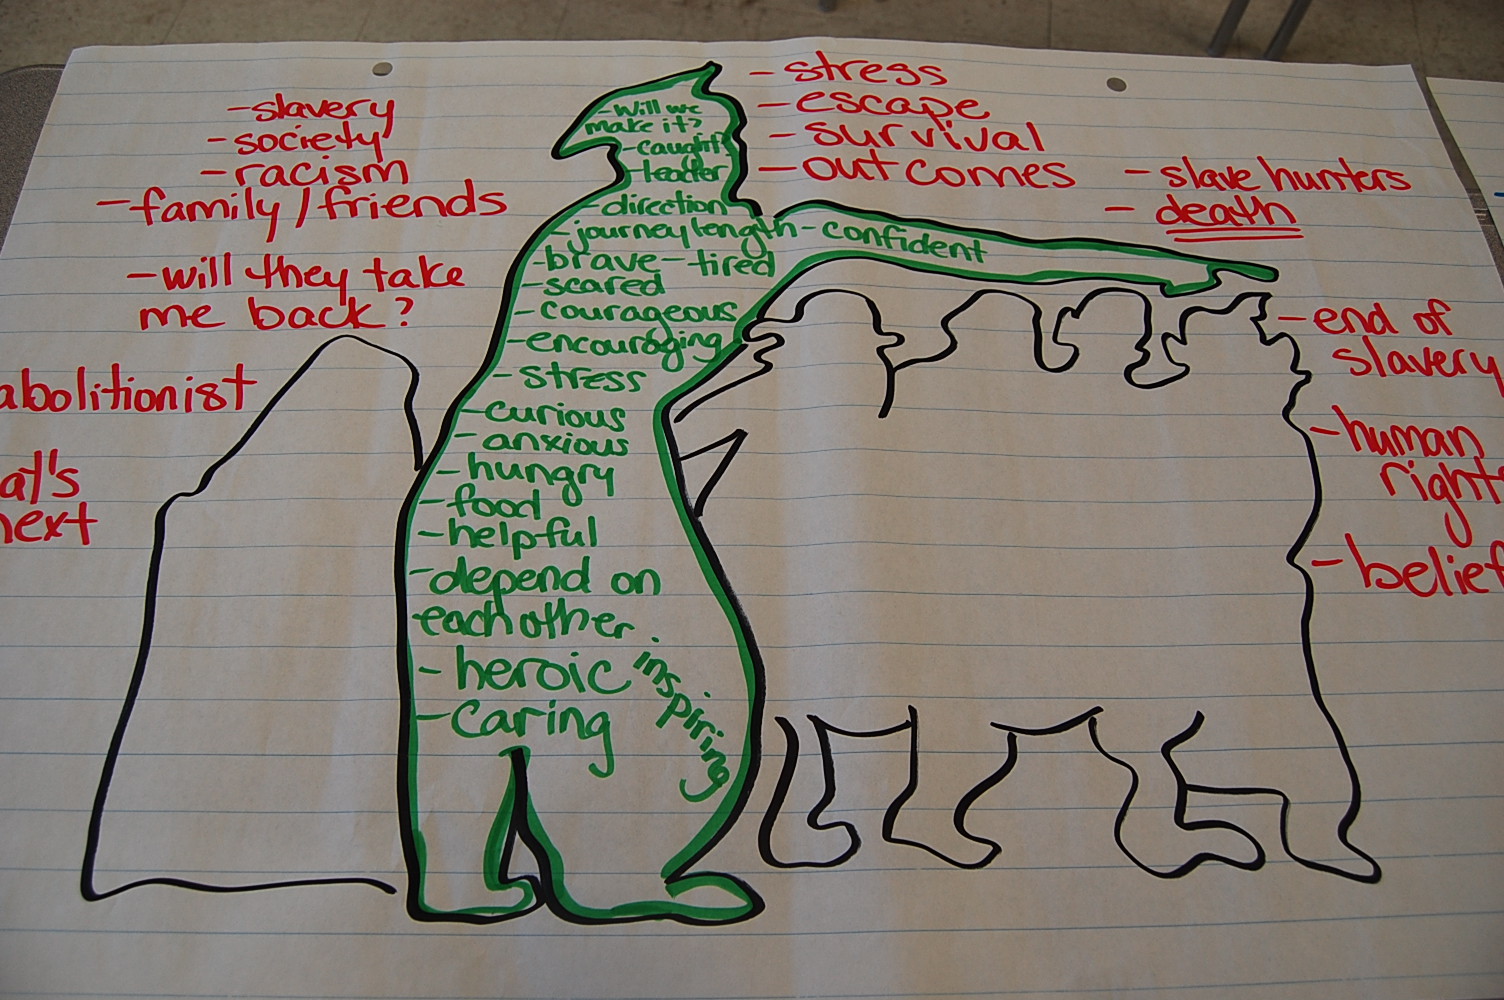 - slavery
- society
- racism
- family / friends
- will they take
me back?
abolitionist
at's
next
- Will we
make it?
- caught?
- leader
- direction
- journey length - confident
- brave - tired
- scared
- courageous
- encouraging
- stress
- curious
- anxious
- hungry
- food
- helpful
- depend on
each other
- heroic
- caring
inspiring
- stress
- escape
- survival
- outcomes
- slave hunters
- death
- end of
slavery
- human
rights
- belief